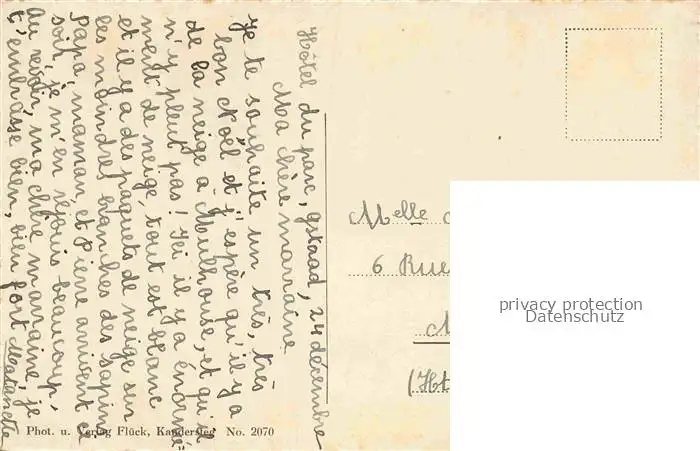 Hôtel du parc, gstaad, 24 décembre
Ma chère marraine
Je te souhaite un très, très
bon Noël et j'espère qu'il y a
de la neige à Mulhouse, et qu'il
n'y pleut pas! Ici il y a énormé-
ment de neige, tout est blanc
et il y a des paquets de neige sur
les moindres branches des sapins
papa, maman, et Pierre arrivent ce
soir, je m'en réjouis beaucoup,
Au revoir, ma chère marraine, je
t'embrasse bien, bien fort
Phot. u. Verlag Flück, Kandersteg No. 2070
Melle
6 Rue
M
(Ht
privacy protection
Datenschutz